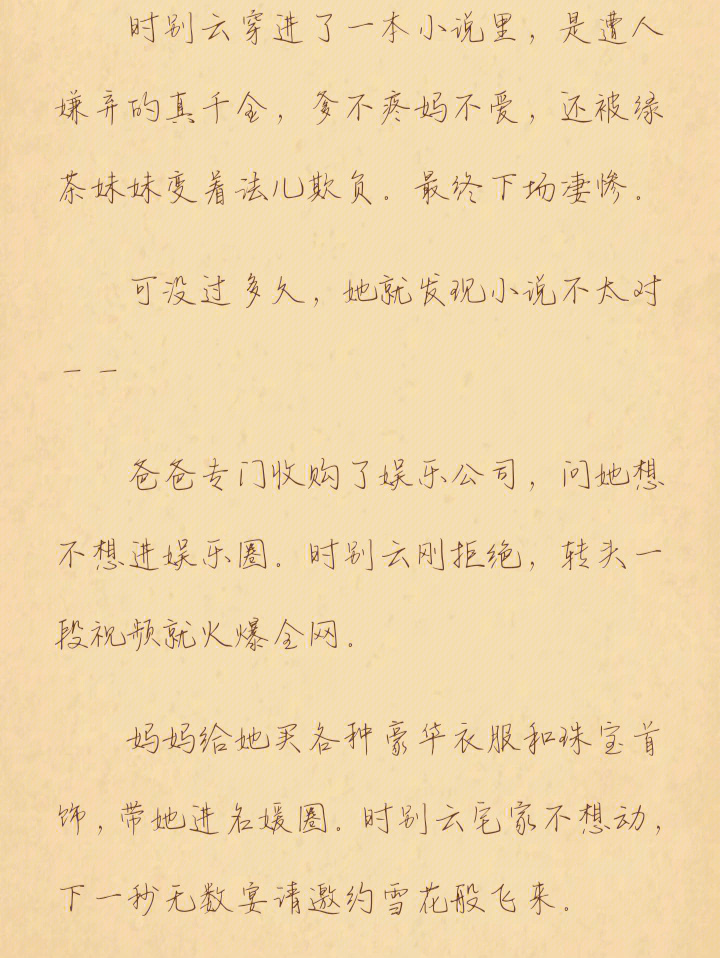 时别云穿进了一本小说里，是遭人
嫌弃的真千金，爹不疼妈不爱，还被绿
茶妹妹变着法儿欺负。最终下场凄惨。
可没过多久，她就发现小说不太对
——
爸爸专门收购了娱乐公司，问她想
不想进娱乐圈。时别云刚拒绝，转头一
段视频就火爆全网。
妈妈给她买各种豪华衣服和珠宝首
饰，带她进名媛圈。时别云宅家不想动，
下一秒无数宴请邀约雪花般飞来。